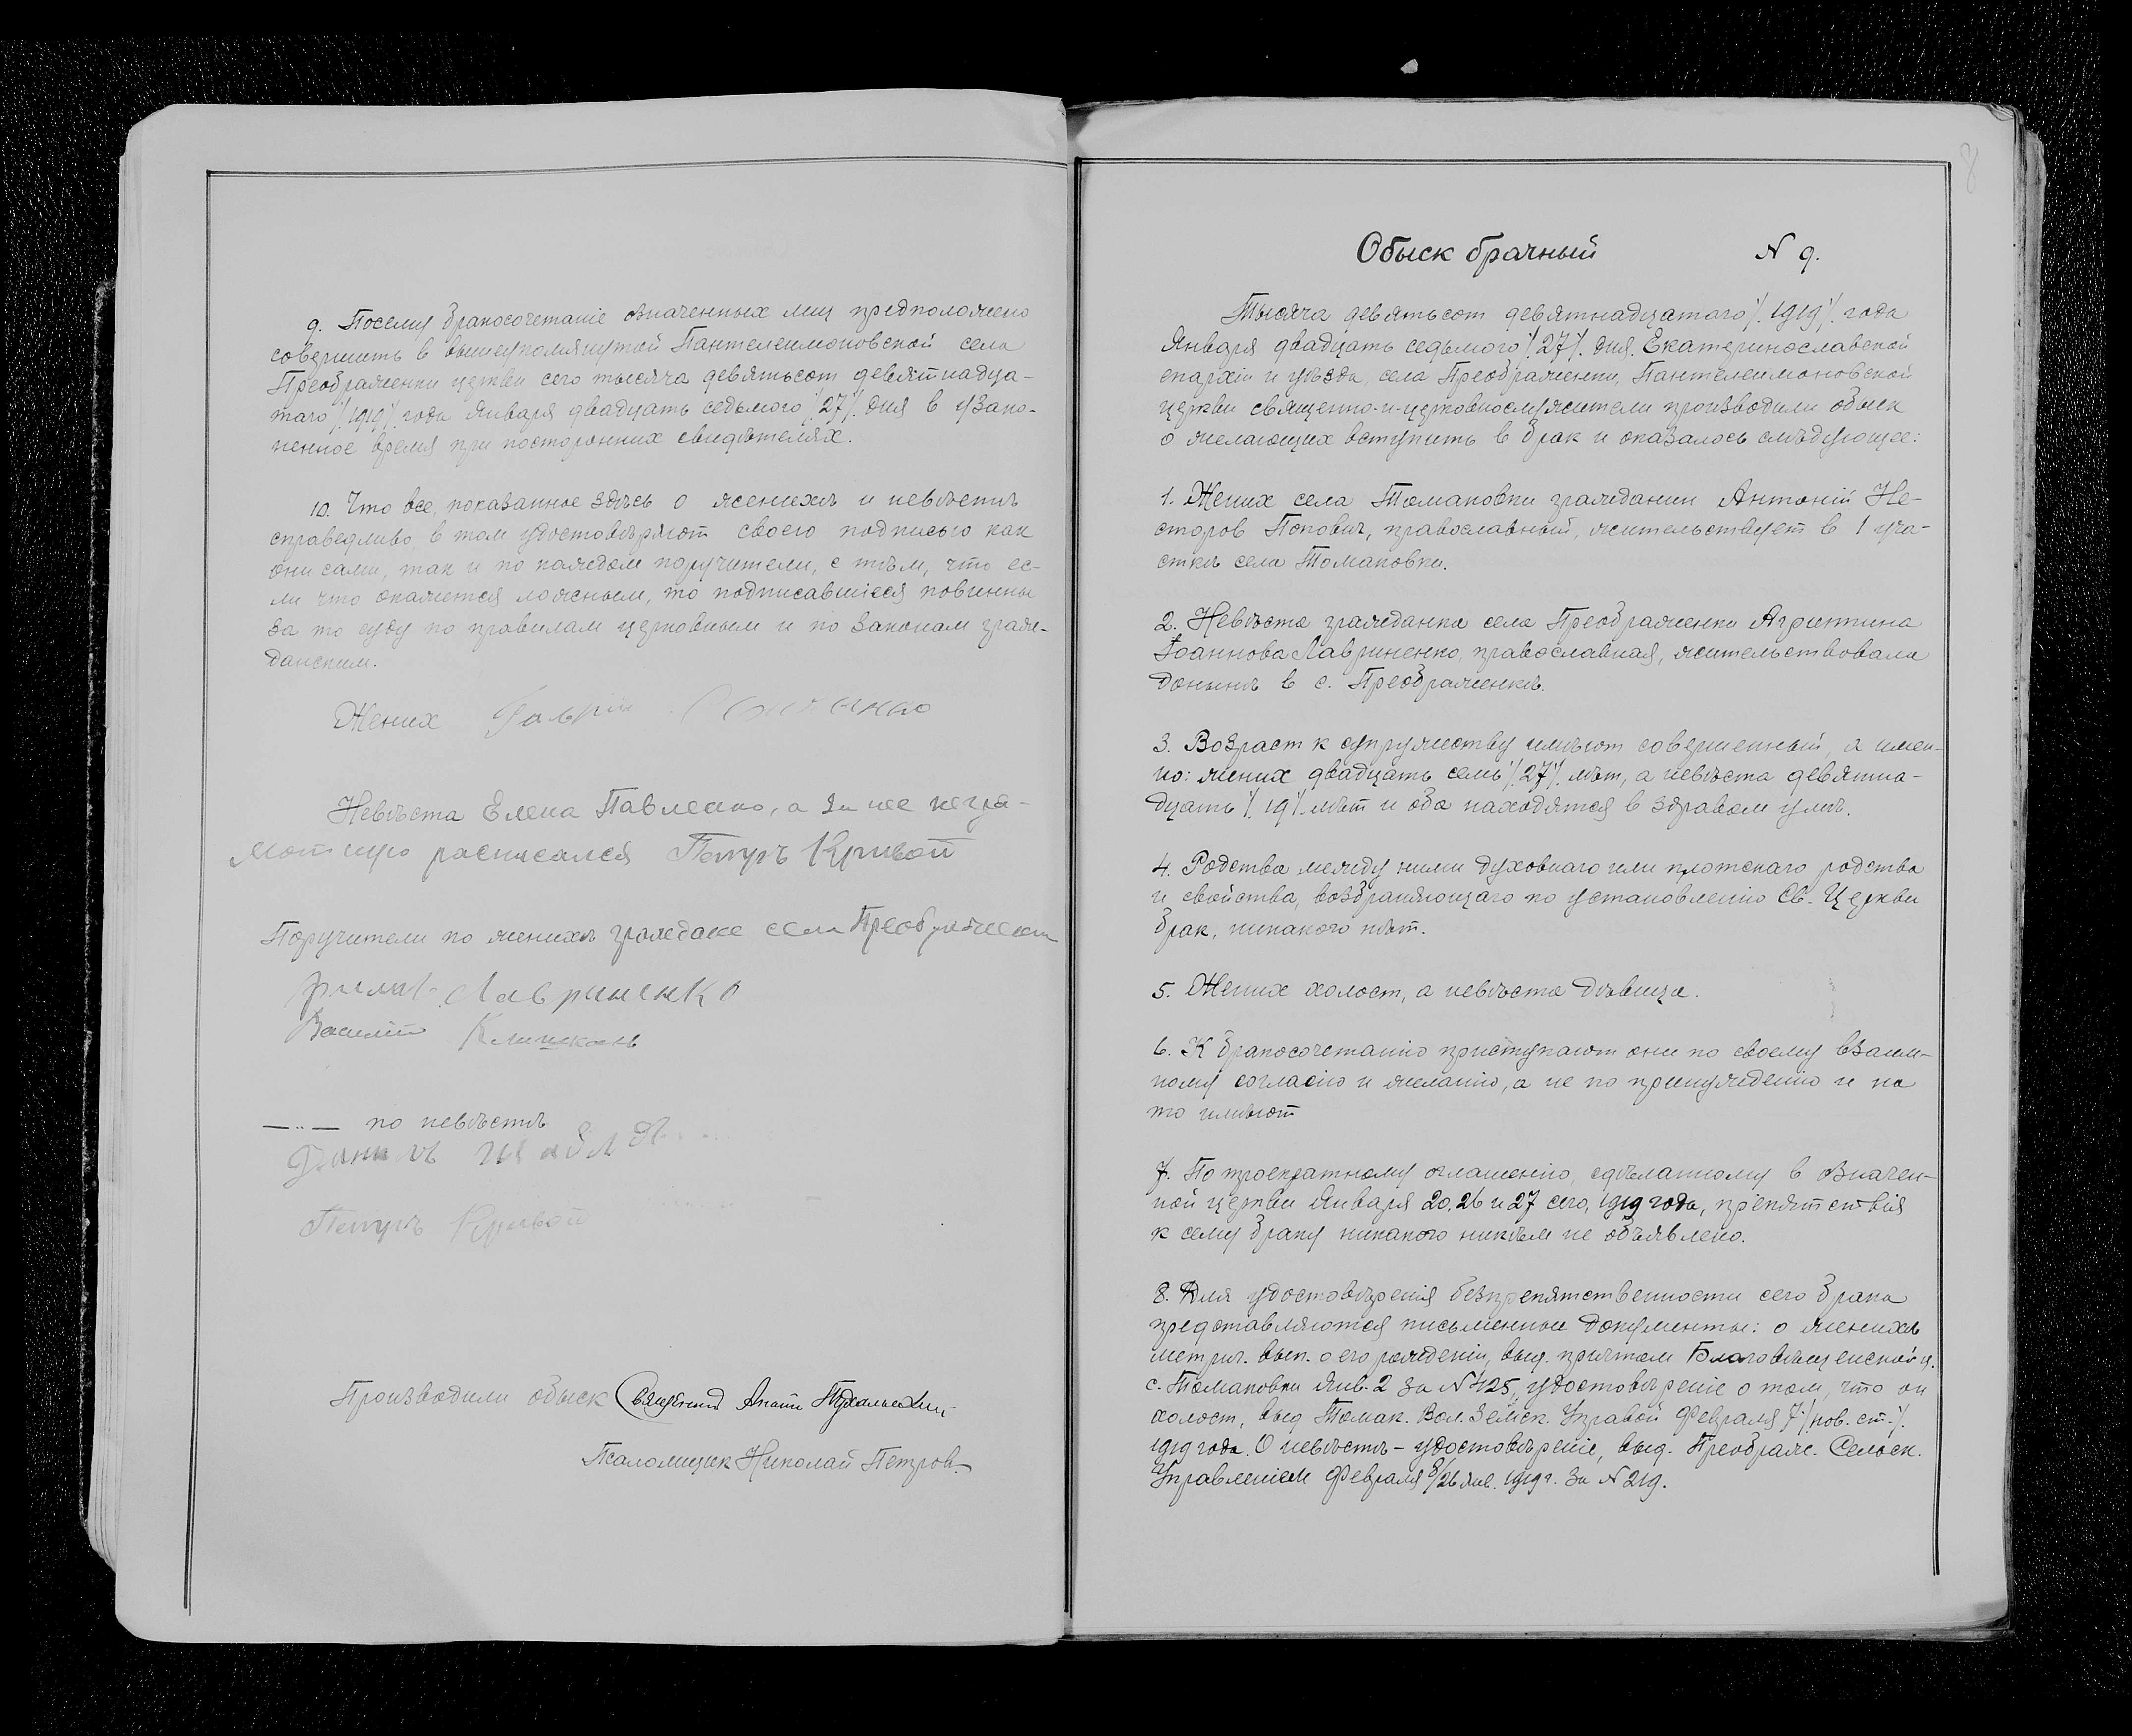 9. Посему бракосочетаніе означенных лиц предположено
совершить в вышеупомянутой Пантелеимоновской села
Преображенки церкви сего тысяча девятьсот девятнадца-
таго /.1919/. года Января двадцать седьмого /.27/. дня в узако-
ненное время при посторонних свидѣтелях.
10. Что все, показанное здѣсь о женихѣ и невѣстѣ
справедливо, в том удостовѣряют своею подписью как
они сами, так и по каждом поручители, с тѣм, что ес-
ли что окажется ложным, то подписавшіеся повинны
за то суду по правилам церковным и по законам граж-
данским.
Жених Гавріил
Невѣста Елена Павленко, а за нее негра-
мотную расписался Петръ Кривой
Поручители по женихѣ граждане села Преображенки
Лавриненко
Василій
—„— по невѣстѣ
Петръ Кривой
Производили обыск Священник
Псаломщик Николай Петров.
8
Обыск брачный N 9.
Тысяча девятьсот девятнадцатаго /.1919/. года
Января двадцать седьмого /.27/. дня. Екатеринославской
епархіи и уѣзда, села Преображенки, Пантелеимоновской
церкви священно-и-церковнослужители производили обыск
о желающих вступить в брак и оказалось слѣдующее:
1. Жених села Томаковки гражданин Антоній Не-
сторов Попович, православный, жительствует в 1 уча-
сткѣ села Томаковки.
2. Невѣста гражданка села Преображенки Агриппина
Іоаннова Лавриненко, православная, жительствовала
донынѣ в с. Преображенкѣ.
3. Возраст к супружеству имѣют совершенный, а имен-
но: жених двадцать семь /.27/. лѣт, а невѣста девятна-
дцать /.19/. лѣт и оба находятся в здравом умѣ.
4. Родства между ними духовнаго или плотскаго родства
и свойства, возбраняющаго по установленію Св. Церкви
брак, никакого нѣт.
5. Жених холост, а невѣста дѣвица.
6. К бракосочетанію приступают они по своему взаим-
ному согласію и желанію, а не по принужденію и на
то имѣют
7. По троекратному оглашенію, сдѣланному в означен-
ной церкви Января 20, 26 и 27 сего, 1919 года, препятствія
к сему браку никакого никѣм не объявлено.
8. Для удостовѣренія безпрепятственности сего брака
представляются письменные документы: о женихѣ
метрич. вып. о его рожденіи, выд. причтом Благовѣщенской ц.
с. Томаковки Янв. 2 за N 425, удостовѣреніе о том, что он
холост, выд Томак. Вол. Земск. Управой Февраля 7 /.нов. ст./.
1919 года. О невѣстѣ – удостовѣреніе, выд. Преображ. Сельск.
Управленіем Февраля 8/26 Янв. 1919 г. за N 219.